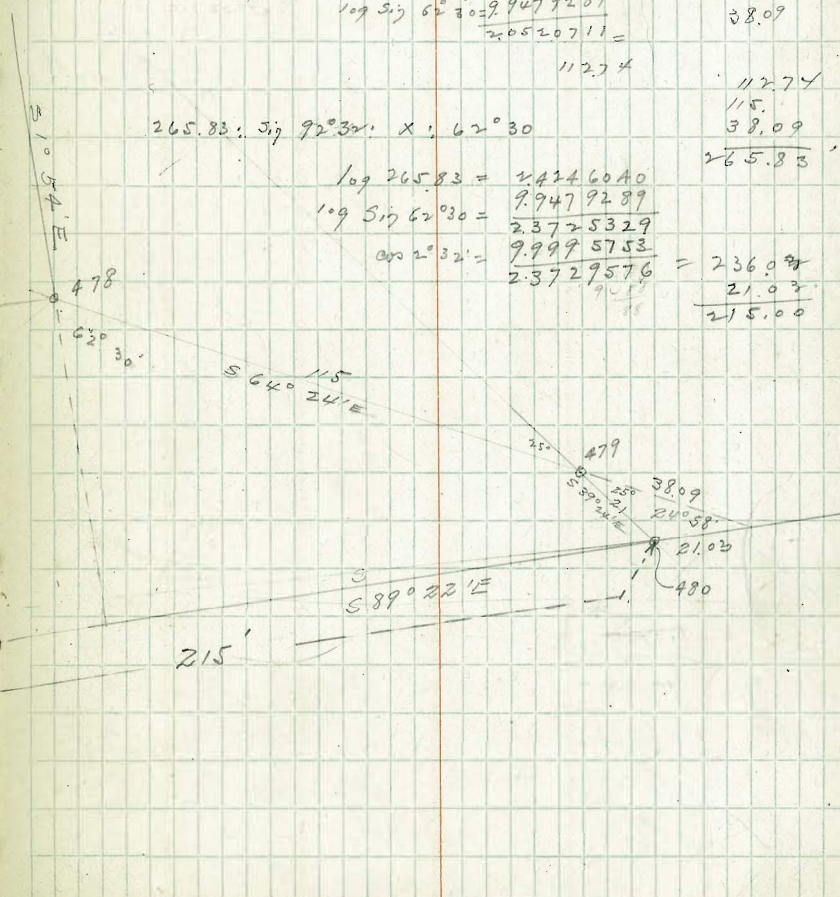 log Sin 62° 30 = 9.9479289
2.0520711 =
112.74
38.09
112.74
115.
38.09
265.83
265.83 : Sin 92° 32' : X : 62° 30
log 265.83 = 2.4246040
log Sin 62° 30 = 9.9479289
2.3725329
cos 2° 32' = 9.9995753
2.3729576 = 236.03
21.03
215.00
S 1° 54' E
478
62° 30'
115
S 64° 24' E
25°
479
S 39° 24' E
25°
21
38.09
24° 58'
21.03
480
S
S 89° 22' E
215'